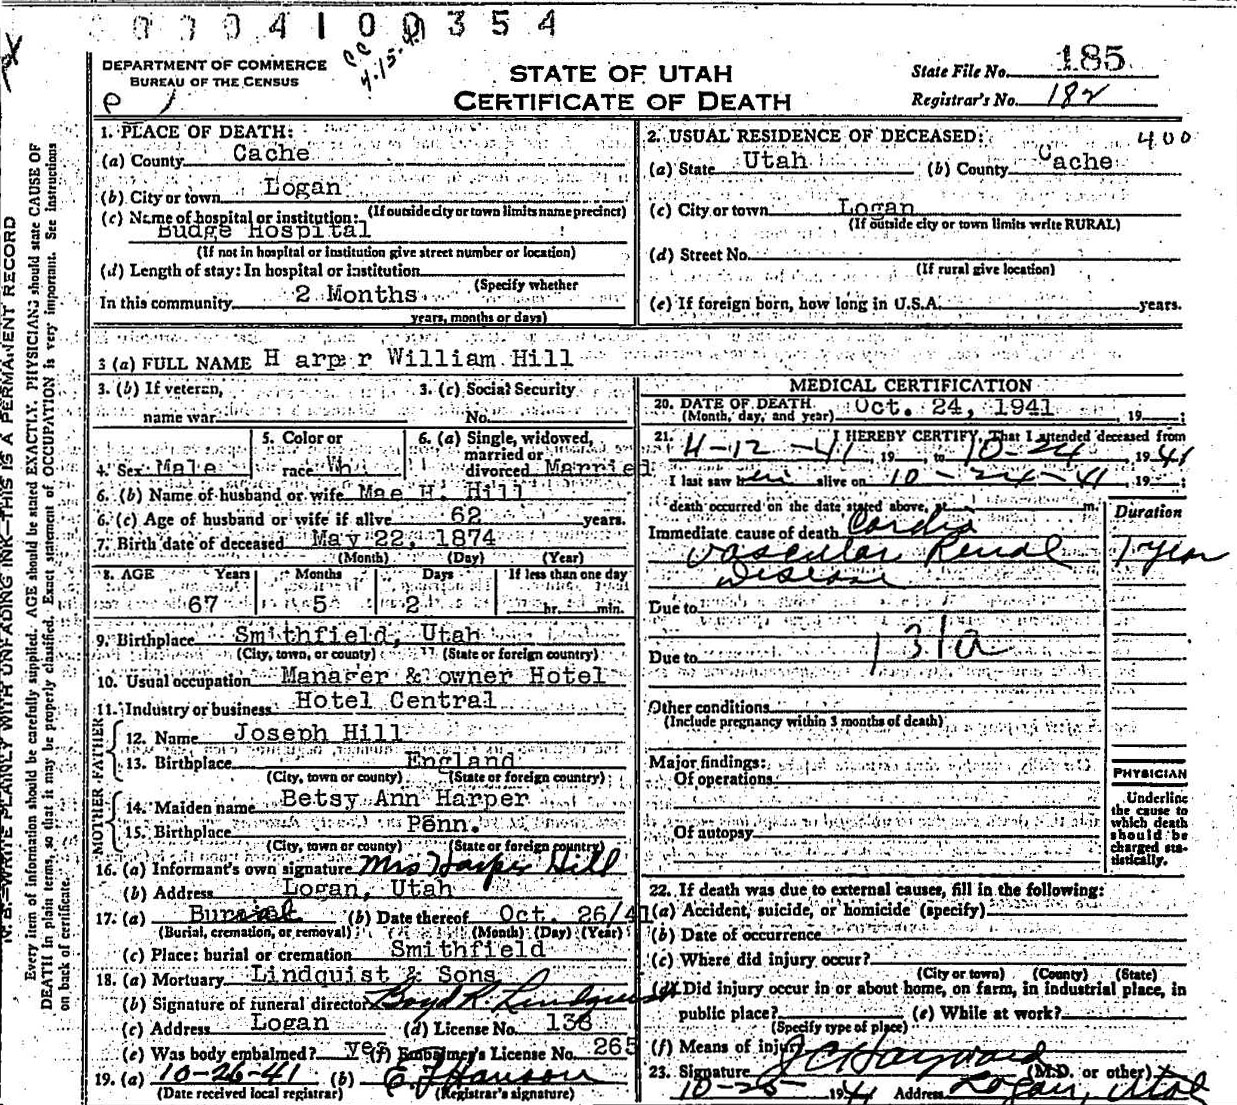 0004100354
4-15-
DEPARTMENT OF COMMERCE
BUREAU OF THE CENSUS
STATE OF UTAH
CERTIFICATE OF DEATH
State File No. 185
Registrar's No. 182
1. PLACE OF DEATH:
(a) County Cache
(b) City or town Logan
(If outside city or town limits name precinct)
(c) Name of hospital or institution:
Budge Hospital
(If not in hospital or institution give street number or location)
(d) Length of stay: In hospital or institution
(Specify whether
In this community 2 Months
years, months or days)
2. USUAL RESIDENCE OF DECEASED: 400
(a) State Utah (b) County Cache
(c) City or town Logan
(If outside city or town limits write RURAL)
(d) Street No.
(If rural give location)
(e) If foreign born, how long in U.S.A. years.
3 (a) FULL NAME Harper William Hill
3. (b) If veteran,
name war
3. (c) Social Security
No.
4. Sex Male
5. Color or
race Wh
6. (a) Single, widowed,
married or
divorced Married
6. (b) Name of husband or wife Mae H. Hill
6. (c) Age of husband or wife if alive 62 years.
7. Birth date of deceased May 22, 1874
(Month) (Day) (Year)
8. AGE Years Months Days If less than one day
67 5 2 hr. min.
9. Birthplace Smithfield, Utah
(City, town, or county) (State or foreign country)
10. Usual occupation Manager & owner Hotel
11. Industry or business Hotel Central
FATHER
12. Name Joseph Hill
13. Birthplace England
(City, town or county) (State or foreign country)
MOTHER
14. Maiden name Betsy Ann Harper
15. Birthplace Penn.
(City, town or county) (State or foreign country)
16. (a) Informant's own signature Mrs Harper Hill
(b) Address Logan, Utah
17. (a) Burial (b) Date thereof Oct. 26/41
(Burial, cremation, or removal) (Month) (Day) (Year)
(c) Place: burial or cremation Smithfield
18. (a) Mortuary Lindquist & Sons
(b) Signature of funeral director Boyd R. Lindquist
(c) Address Logan (d) License No. 136
(e) Was body embalmed? yes (f) Embalmer's License No. 265
19. (a) 10-26-41 (b) E J Hanson
(Date received local registrar) (Registrar's signature)
MEDICAL CERTIFICATION
20. DATE OF DEATH Oct. 24, 1941 19 ;
(Month, day, and year)
21. I HEREBY CERTIFY, That I attended deceased from
4-12-41, 19 to 10-24 1941
I last saw him alive on 10-24-41, 19 ;
death occurred on the date stated above, at m.
Duration
Immediate cause of death Cardio
vascular Renal 1 year
Disease
Due to
Due to 131a
Other conditions
(Include pregnancy within 3 months of death)
Major findings:
Of operations
Of autopsy
PHYSICIAN
Underline
the cause to
which death
should be
charged sta-
tistically.
22. If death was due to external causes, fill in the following:
(a) Accident, suicide, or homicide (specify)
(b) Date of occurrence
(c) Where did injury occur?
(City or town) (County) (State)
(d) Did injury occur in or about home, on farm, in industrial place, in
public place? (e) While at work?
(Specify type of place)
(f) Means of injury
23. Signature J C Hayward (M.D. or other)
10-25- 1941 Address Logan, Utah
N. B.—WRITE PLAINLY WITH UNFADING INK—THIS IS A PERMANENT RECORD
Every item of information should be carefully supplied. AGE should be stated EXACTLY. PHYSICIANS should state CAUSE OF
DEATH in plain terms, so that it may be properly classified. Exact statement of OCCUPATION is very important. See instructions
on back of certificate.